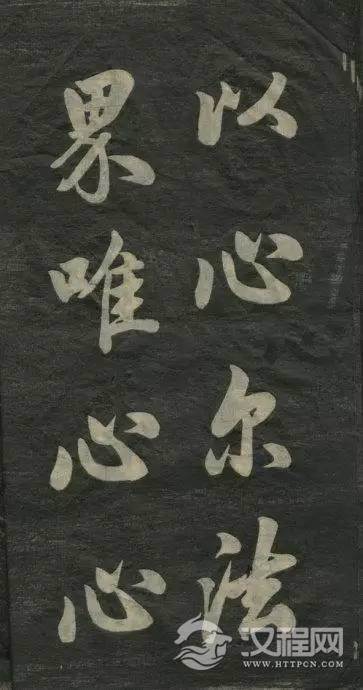 以心尔法
界唯心心
汉程网
WWW.HTTPCN.COM